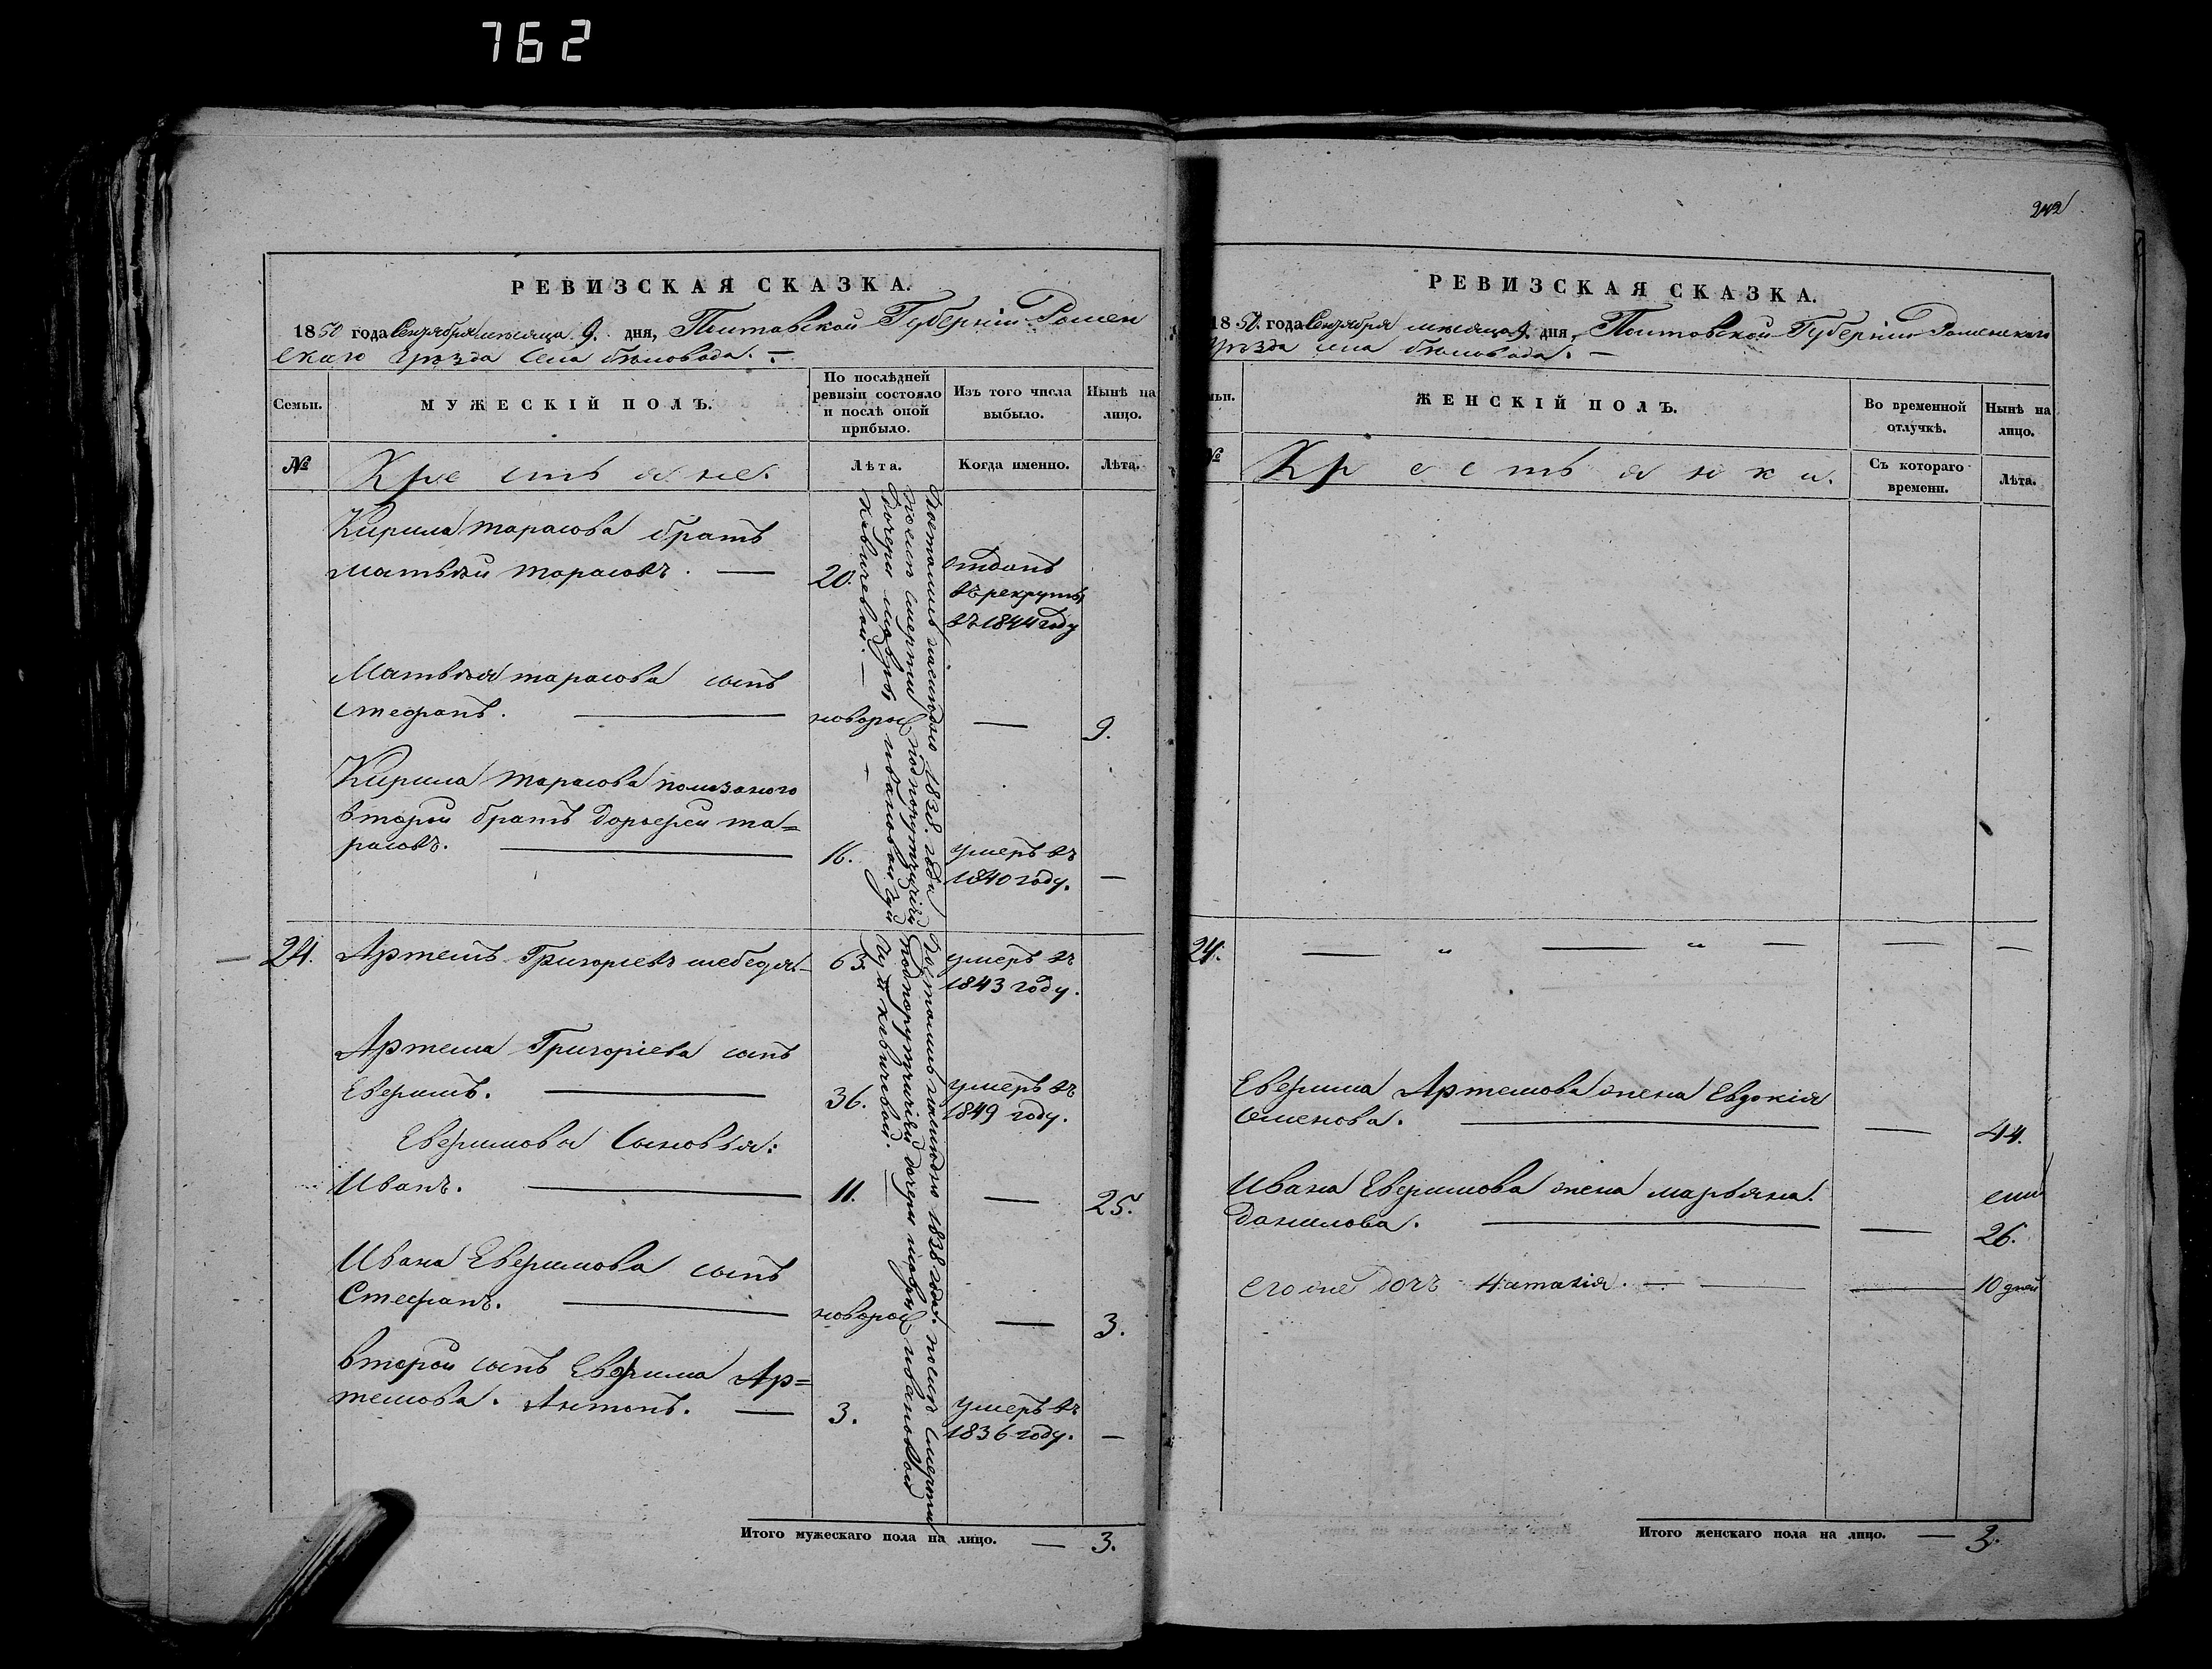 762
242
РЕВИЗСКАЯ СКАЗКА.
1850 года Сентября месяца 9. дня, Полтавской Губерніи Ромен
скаго уѣзда села бѣловода. —
Семьи.
МУЖЕСКІЙ ПОЛЪ.
По послѣдней
ревизіи состояло
и послѣ оной
прибыло.
Изъ того числа
выбыло.
Нынѣ на
лицо.
№
Крестьяне.
Лѣта.
Когда именно.
Лѣта.
Кирила тарасова братъ
матвѣй тарасовъ. — 20.
отданъ
въ рекруты
въ 1844 году
Матвѣя тарасова сынъ
стефанъ. — новорож — 9.
Кирила тарасова
второй братъ дорофей та=
расовъ. — 16.
умеръ въ
1840 году. —
24. Артемъ Григорьевъ лебедя. — 65
умеръ въ
1843 году.
Артема Григоріева сынъ
Евфимъ. — 36.
умеръ въ
1849 году.
Евфимовы сыновья:
Иванъ. — 11. — 25.
Ивана Евфимова сынъ
Стефанъ. — новорож — 3.
второй сынъ Евфима Ар=
темова. Антонъ. — 3.
умеръ въ
1836 году. —
Достались 1838. года
после смерти подпорутчицы
дочери ивановой
Достались 1838 года. после смерти
подпорутчицы дочери ивановой
Итого мужескаго пола на лицо. — 3.
РЕВИЗСКАЯ СКАЗКА.
1850. года Сентября месяца 9. дня, Полтавской Губерніи Роменскаго
уѣзда села бѣловода. —
ЖЕНСКІЙ ПОЛЪ.
Во временной
отлучкѣ.
Нынѣ на
лицо.
№
Крестьянки.
Съ котораго
времени.
Лѣта.
24. — „ — „ — — —
Евфима Артемова жена Евдокія
семенова. — — 44.
Ивана Евфимова жена марьяна
данилова. — — 26.
его же дочь — — 10 дней
Итого женскаго пола на лицо. — 3.